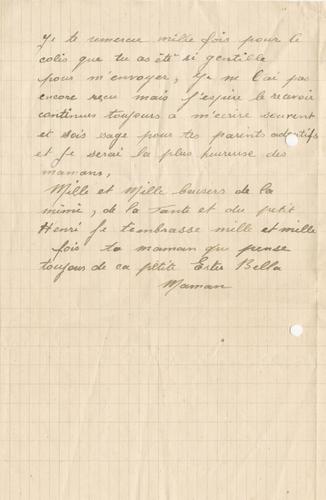 Je te remercie mille fois pour le
colis que tu as été si gentille
pour m'envoyer, Je ne l'ai pas
encore reçu mais j'espère le recevoir
continues toujours a m'écrire souvent
et sois sage pour tes parents adoptifs
et je serai la plus heureuse des
mamans,
Mille et Mille baisers de la
mimi, de la Tante et du petit
Henri je t'embrasse mille et mille
fois ta maman qui pense
toujours de ca petite Ester Bella
Maman